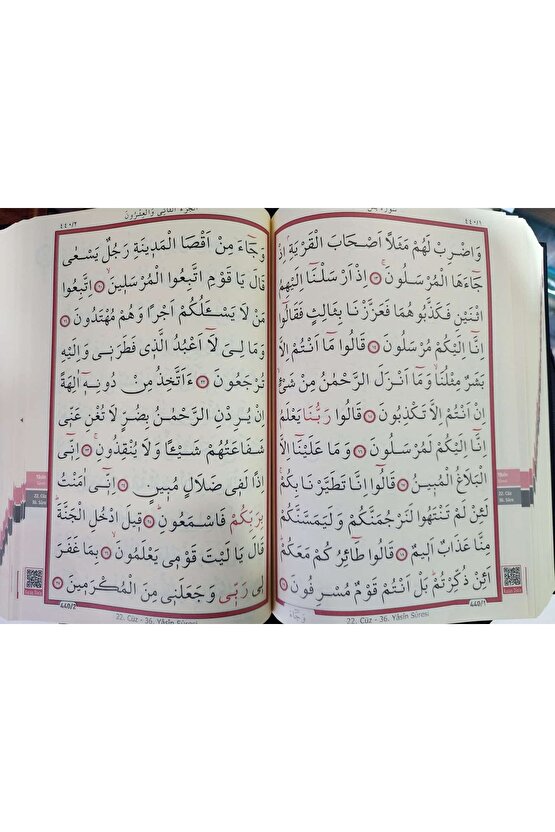 سورة يس
٤٤٠/١
وَاضْرِبْ لَهُمْ مَثَلًا اَصْحَابَ الْقَرْيَةِ اِذْ
جَٓاءَهَا الْمُرْسَلُونَ ۚ ١٣ اِذْ اَرْسَلْنَٓا اِلَيْهِمُ
اثْنَيْنِ فَكَذَّبُوهُمَا فَعَزَّزْنَا بِثَالِثٍ فَقَالُٓوا
اِنَّٓا اِلَيْكُمْ مُرْسَلُونَ ١٤ قَالُوا مَٓا اَنْتُمْ اِلَّا
بَشَرٌ مِثْلُنَاۙ وَمَٓا اَنْزَلَ الرَّحْمٰنُ مِنْ شَيْءٍۙ
اِنْ اَنْتُمْ اِلَّا تَكْذِبُونَ ١٥ قَالُوا رَبُّنَا يَعْلَمُ
اِنَّٓا اِلَيْكُمْ لَمُرْسَلُونَ ١٦ وَمَا عَلَيْنَٓا اِلَّا
الْبَلَاغُ الْمُبٖينُ ١٧ قَالُٓوا اِنَّا تَطَيَّرْنَا بِكُمْۚ
لَئِنْ لَمْ تَنْتَهُوا لَنَرْجُمَنَّكُمْ وَلَيَمَسَّنَّكُمْ
مِنَّا عَذَابٌ اَلٖيمٌ ١٨ قَالُوا طَٓائِرُكُمْ مَعَكُمْۜ
اَئِنْ ذُكِّرْتُمْۜ بَلْ اَنْتُمْ قَوْمٌ مُسْرِفُونَ ١٩
وَجَٓاءَ
440/1
22. Cüz - 36. Yâsîn Sûresi
Yâsîn
22. Cüz
36. Sûre
الجزء الثاني والعشرون
٤٤٠/٢
وَجَٓاءَ مِنْ اَقْصَا الْمَدٖينَةِ رَجُلٌ يَسْعٰى
قَالَ يَا قَوْمِ اتَّبِعُوا الْمُرْسَلٖينَۙ ٢٠ اِتَّبِعُوا
مَنْ لَا يَسْـَٔلُكُمْ اَجْرًا وَهُمْ مُهْتَدُونَ ٢١
وَمَا لِيَ لَٓا اَعْبُدُ الَّذٖي فَطَرَنٖي وَاِلَيْهِ
تُرْجَعُونَ ٢٢ ءَاَتَّخِذُ مِنْ دُونِهٖٓ اٰلِهَةً
اِنْ يُرِدْنِ الرَّحْمٰنُ بِضُرٍّ لَا تُغْنِ عَنّٖي
شَفَاعَتُهُمْ شَيْـًٔا وَلَا يُنْقِذُونِۚ ٢٣ اِنّٖٓي
اِذًا لَفٖي ضَلَالٍ مُبٖينٍ ٢٤ اِنّٖٓي اٰمَنْتُ
بِرَبِّكُمْ فَاسْمَعُونِۜ ٢٥ قٖيلَ ادْخُلِ الْجَنَّةَۜ
قَالَ يَا لَيْتَ قَوْمٖي يَعْلَمُونَۙ ٢٦ بِمَا غَفَرَ
لٖي رَبّٖي وَجَعَلَنٖي مِنَ الْمُكْرَمٖينَ ٢٧
440/2
22. Cüz - 36. Yâsîn Sûresi
Yâsîn
22. Cüz
36. Sûre